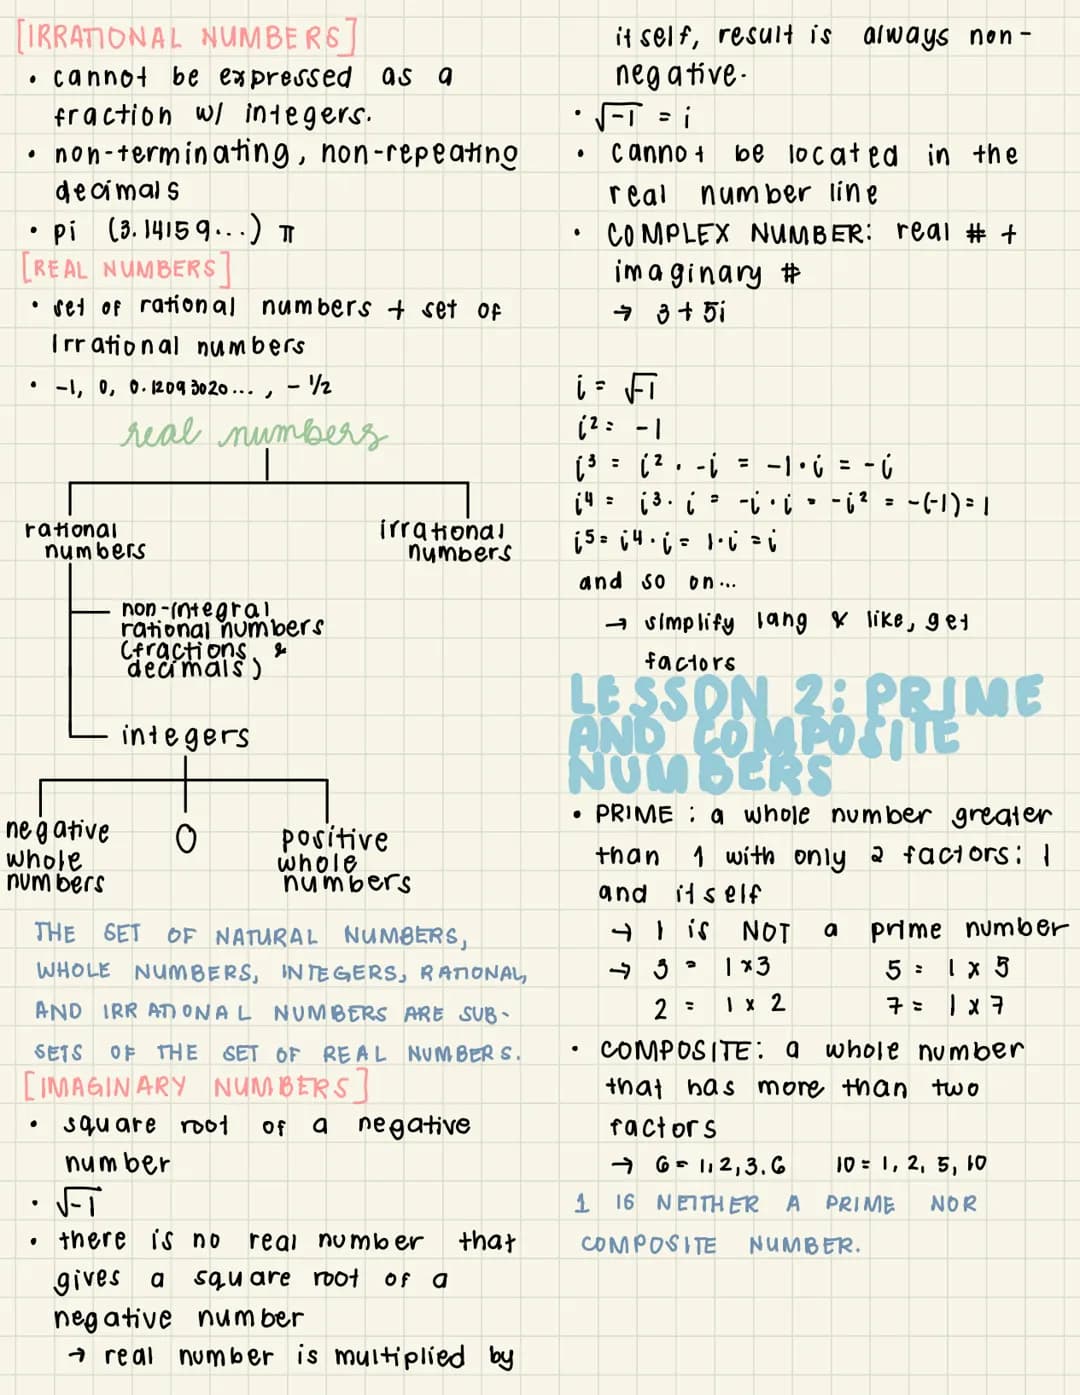 [IRRATIONAL NUMBERS]
• cannot be expressed as a
fraction w/ integers.
• non-terminating, non-repeating
decimals
• pi (3.14159...) π
[REAL NUMBERS]
• set of rational numbers + set of
Irrational numbers
• -1, 0, 0.12093020..., - 1/2
real numbers
rational
numbers
irrational
numbers
non-integral
rational numbers
(fractions &
decimals)
integers
negative
whole
numbers
0
positive
whole
numbers
THE SET OF NATURAL NUMBERS,
WHOLE NUMBERS, INTEGERS, RATIONAL,
AND IRRATIONAL NUMBERS ARE SUB-
SETS OF THE SET OF REAL NUMBERS.
[IMAGINARY NUMBERS]
• square root of a negative
number
• √-1
• there is no real number that
gives a square root of a
negative number
→ real number is multiplied by
itself, result is always non-
negative.
• √-1 = i
• cannot be located in the
real number line
• COMPLEX NUMBER: real # +
imaginary #
→ 3 + 5i
i = √-1
i² = -1
i³ = i² · -i = -1 · i = -i
i⁴ = i³ · i = -i · i = -i² = -(-1) = 1
i⁵ = i⁴ · i = 1 · i = i
and so on...
→ simplify lang & like, get
factors
LESSON 2: PRIME
AND COMPOSITE
NUMBERS
• PRIME : a whole number greater
than 1 with only 2 factors: 1
and itself
→ 1 is NOT a prime number
→ 3 = 1 x 3 5 = 1 x 5
2 = 1 x 2 7 = 1 x 7
• COMPOSITE: a whole number
that has more than two
factors
→ 6 = 1, 2, 3, 6 10 = 1, 2, 5, 10
1 IS NEITHER A PRIME NOR
COMPOSITE NUMBER.